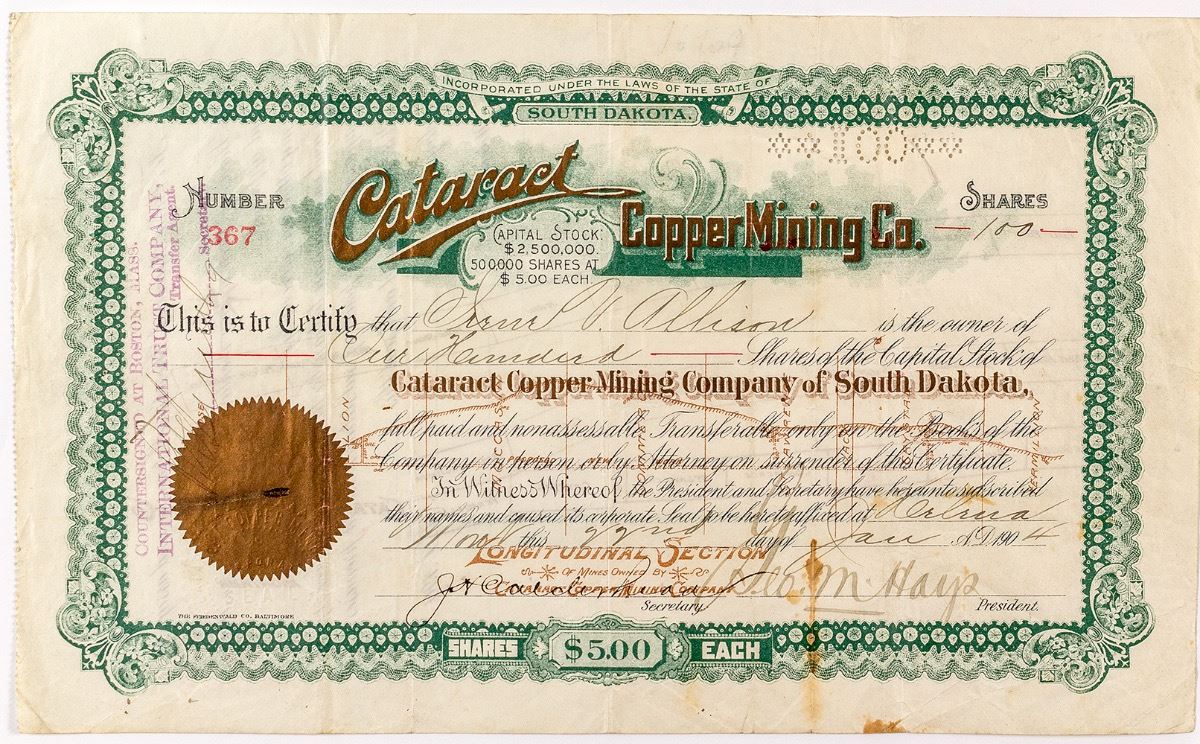 INCORPORATED UNDER THE LAWS OF THE STATE OF
SOUTH DAKOTA.
**100**
NUMBER
367
Cataract
Copper Mining Co.
SHARES
100
CAPITAL STOCK:
$2,500,000.
500,000 SHARES AT
$5.00 EACH.
COUNTERSIGNED AT BOSTON, MASS.
INTERNATIONAL TRUST COMPANY,
Transfer Agent.
This is to Certify that Allison is the owner of
Shares of the Capital Stock of
Cataract Copper Mining Company of South Dakota,
full paid and nonassessable Transferable only on the Books of the
Company in person or by Attorney on surrender of this Certificate.
In Witness Whereof, the President and Secretary have hereunto subscribed
their names and caused its corporate Seal to be hereto affixed at Helena
this 22nd day of Jan A.D. 1904
LONGITUDINAL SECTION
OF MINES OWNED BY
CATARACT COPPER MINING COMPANY
Geo. M Hays
Secretary
President.
SEAL
THE FRIEDENWALD CO. BALTIMORE
SHARES $5.00 EACH